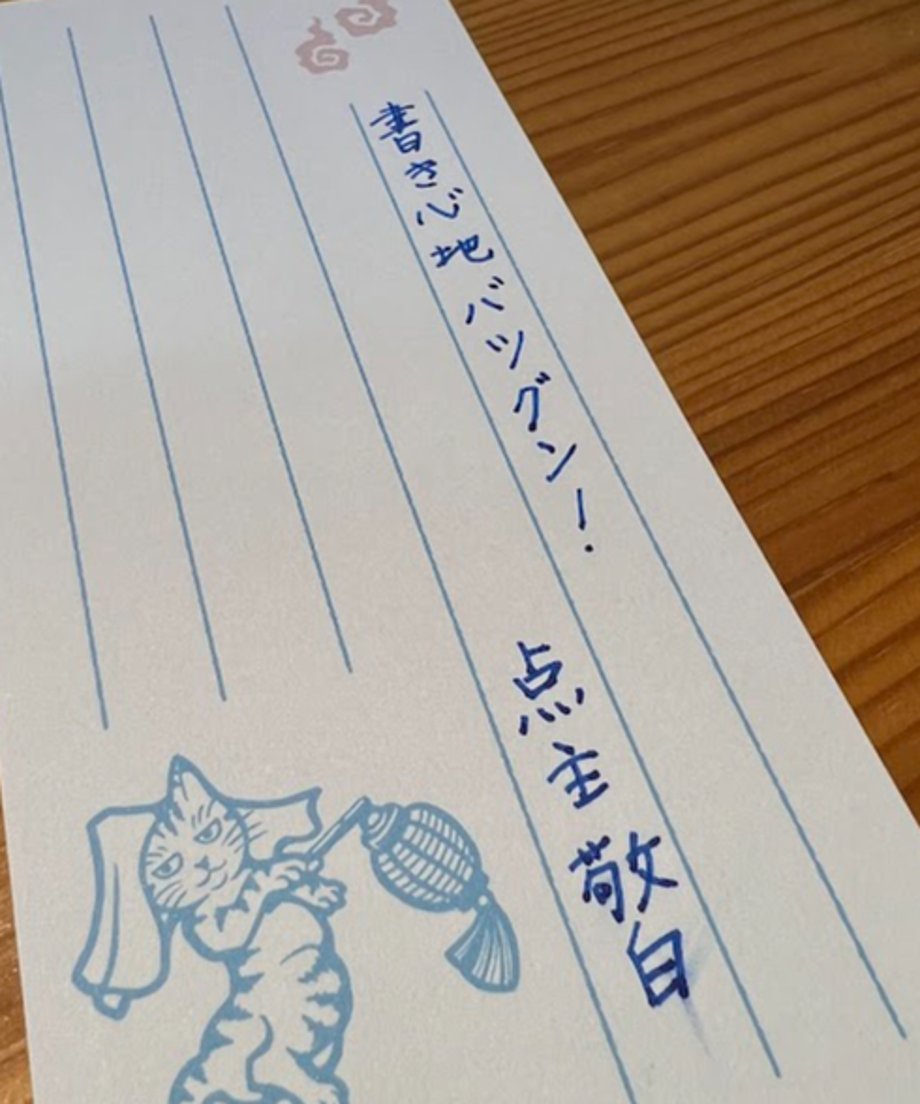 書き心地バツグン！
点主敬白